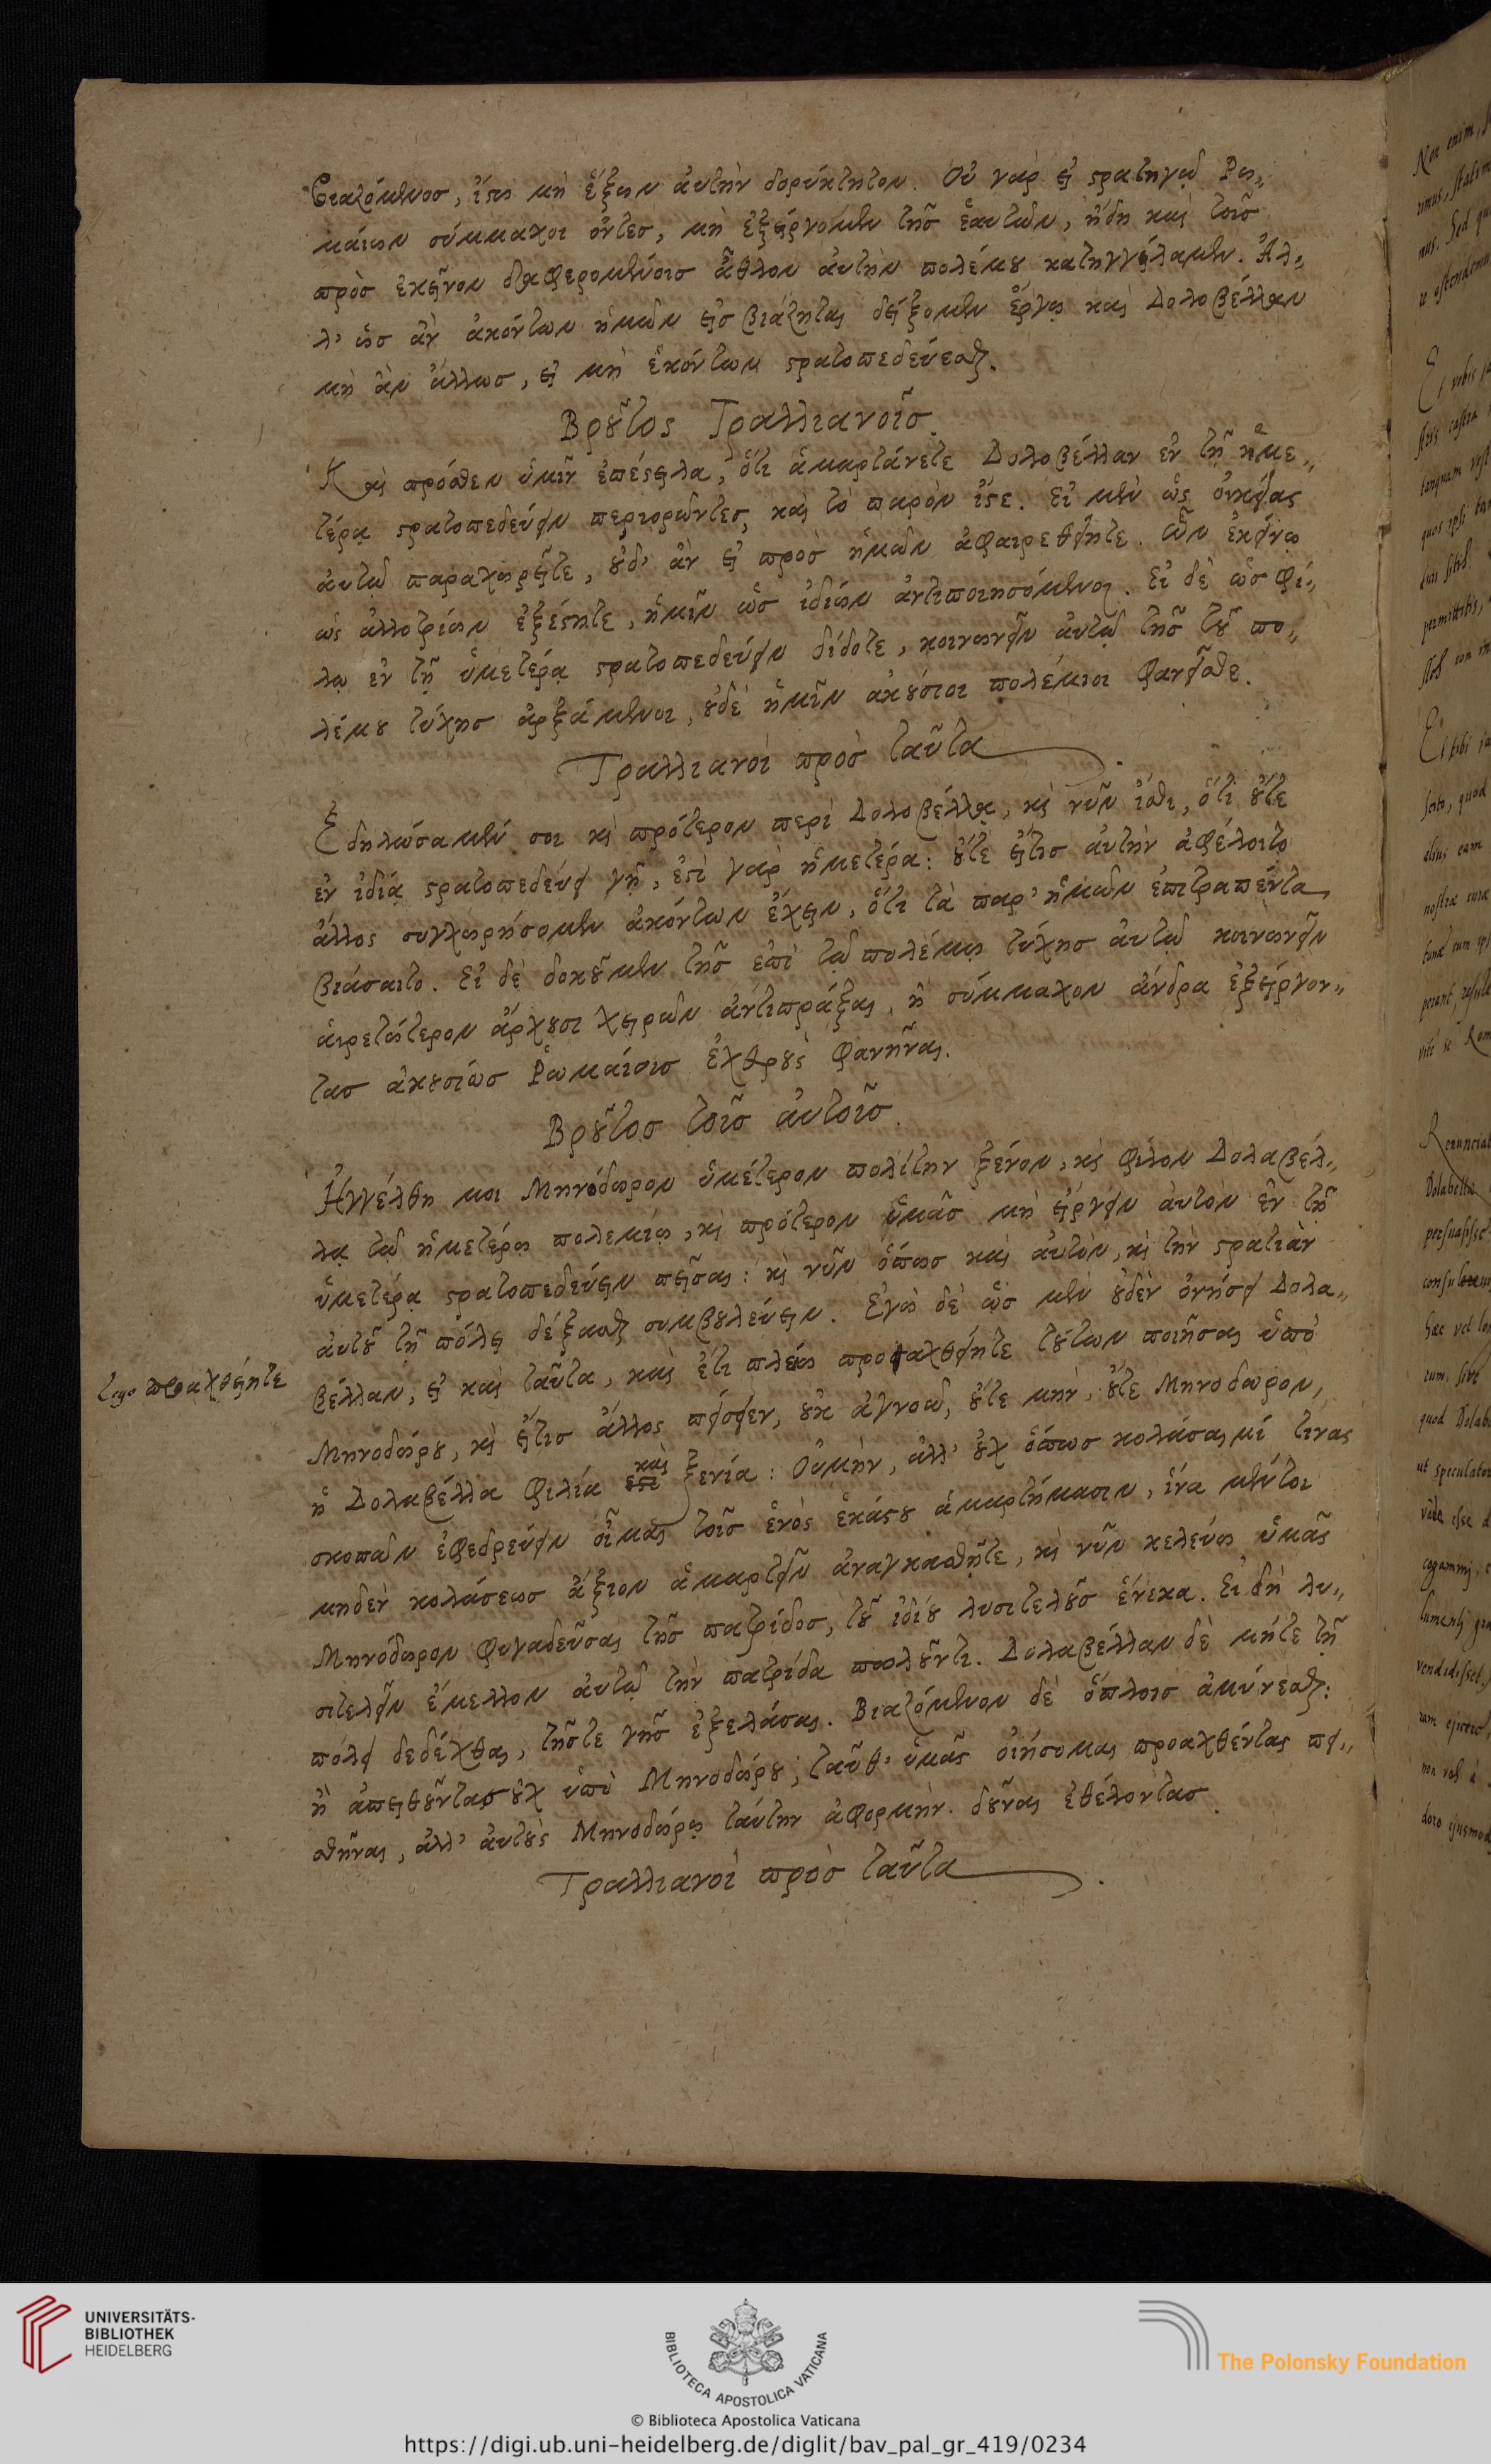 βιαζόμενος, ἴσω μὴ ἕξων ἀυτὴν δορύκτητον. Οὐ γὰρ εἰ στρατηγῷ Ρω„
μαίων σύμμαχοι ὄντες, μὴ ἐξείργομεν τῆς ἑαυτῶν, ἤδη καὶ τοῖς
πρὸς ἐκεῖνον διαφερομένοις ἆθλον ἀυτὴν πολέμου κατηγγείλαμεν. Ἀλ„
λ' ὡς ἂν ἀκόντων ἡμῶν εἰσβιάζηται δείξομεν ἔργῳ καὶ Δολοβέλλαν
μὴ ἂν ἄλλως, εἰ μὴ ἑκόντων στρατοπεδεύεσθαι.
Βροῦτος Τραλλιανοῖς.
Καὶ πρόσθεν ὑμῖν ἐπέστειλα, ὅτι ἁμαρτάνετε Δολοβέλλαν ἐν τῇ ἡμε„
τέρᾳ στρατοπεδεύειν περιορῶντες, καὶ τὸ παρὸν ἴστε. Εἰ μὲν ὡς οἰκείας
ἀυτῷ παραχωρεῖτε, οὐδ' ἂν εἰ πρὸς ἡμῶν ἀφαιρεθείητε. ὧν ἐκείνῳ
ὡς ἀλλοτρίων ἐξέστητε, ἡμῖν ὡς ἰδίων ἀντιποιησόμενοι. Εἰ δὲ ὡς φί„
λῳ ἐν τῇ ὑμετέρᾳ στρατοπεδεύειν δίδοτε, κοινωνεῖν ἀυτῷ τῆς τοῦ πο„
λέμου τύχης ἀρξάμενοι, οὐδὲ ἡμῖν ἀκούσιοι πολέμιοι φανεῖσθε.
Τραλλιανοὶ πρὸς ταῦτα.
Ἐδηλώσαμέν σοι καὶ πρότερον περὶ Δολοβέλλα, καὶ νῦν ἴσθι, ὅτι οὔτε
ἐν ἰδίᾳ στρατοπεδεύει γῇ, ἐστὶ γὰρ ἡμετέρα: οὔτε εἴτις ἀυτὴν ἀφέλοιτο
ἄλλος συγχωρήσομεν ἀκόντων ἔχειν, ὅτι τὰ παρ' ἡμῶν ἐπιτραπέντα
βιάσαιτο. Εἰ δὲ δοκοῦμεν τῆς ἐπὶ τῷ πολέμῳ τύχης ἀυτῷ κοινωνεῖν
ἁιρετώτερον ἄρχουσι χειρῶν ἀντιπράξαι, ἢ σύμμαχον ἄνδρα ἐξείργον„
τας ἀκουσίως Ῥωμαίοις ἐχθροὺς φανῆναι.
Βροῦτος τοῖς ἀυτοῖς.
Ἠγγέλθη μοι Μηνόδωρον ὑμέτερον πολίτην ξένον, καὶ φίλον Δολαβέλ„
λᾳ τῷ ἡμετέρῳ πολεμίῳ, καὶ πρότερον ὑμᾶς μὴ εἴργειν ἀυτὸν ἐν τῇ
ὑμετέρᾳ στρατοπεδεύειν πεῖσαι: καὶ νῦν ὅπως καὶ ἀυτὸν, καὶ τὴν στρατιὰν
ἀυτοῦ τῇ πόλει δέξησθε συμβουλεύειν. Ἐγὼ δὲ ὡς μὲν οὐδὲν ὀνήσει Δολα„
βέλλαν, εἰ καὶ ταῦτα, καὶ ἔτι πλείω προσαχθείητε τούτων ποιῆσαι ὑπὸ
lego προαχθείητε
Μηνοδώρου, καὶ εἴτις ἄλλος πείσειεν, οὐκ ἀγνοῶ, οὔτε μὴν, οὔτε Μηνοδώρον,
ἡ Δολαβέλλα φιλία καὶ ξενία: Οὐμὴν, ἀλλ' οὐχ ὅπως κολάσαιμί τινας
σκοπῶν ἐφεδρεύειν οἶμαι τοῖς ἑνὸς ἑκάστου ἁμαρτήμασιν, ἵνα μέντοι
μηδὲν κολάσεως ἄξιον ἁμαρτεῖν ἀναγκασθῆτε, καὶ νῦν κελεύω ὑμᾶς
Μηνόδωρον φυγαδεῦσαι τῆς πατρίδος, τοῦ ἰδίου λυσιτελοῦς ἕνεκα. Εἰ δὴ λυ„
σιτελεῖν ἔμελλον ἀυτῷ τὴν πατρίδα πωλοῦντι. Δολαβέλλαν δὲ μήτε τῇ
πόλει δεδέχθαι, τῆστε γῆς ἐξελάσαι. Βιαζόμενον δὲ ὅπλοις ἀμύνεσθαι:
ἢ ἀπειθοῦντας οὐχ ὑπὸ Μηνοδώρου, ταῦθ' ὑμᾶς οἰήσομαι προαχθέντας πει„
σθῆναι, ἀλλ' ἀυτοὺς Μηνοδώρῳ ταύτην ἀφορμὴν δοῦναι ἐθέλοντας.
Τραλλιανοὶ πρὸς ταῦτα.
UNIVERSITÄTS-
BIBLIOTHEK
HEIDELBERG
BIBLIOTECA APOSTOLICA VATICANA
The Polonsky Foundation
© Biblioteca Apostolica Vaticana
https://digi.ub.uni-heidelberg.de/diglit/bav_pal_gr_419/0234